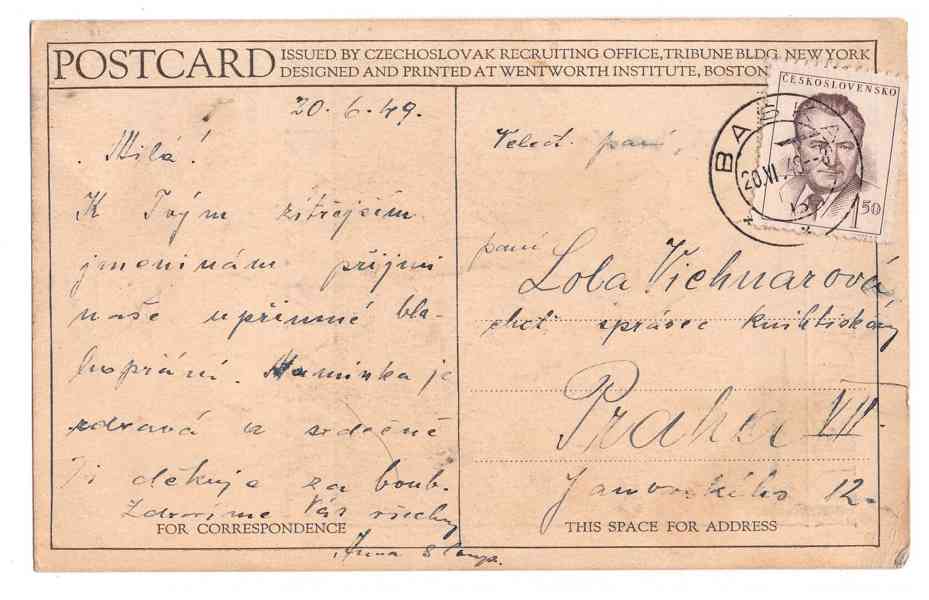 POSTCARD
ISSUED BY CZECHOSLOVAK RECRUITING OFFICE, TRIBUNE BLDG. NEW YORK
DESIGNED AND PRINTED AT WENTWORTH INSTITUTE, BOSTON
ČESKOSLOVENSKO
1 50
20. 6. 49.
Milá!
K Tvým zítřejším
jmeninám přijmi
naše upřímné bla-
hopřání. Maminka je
zdravá a srdečně
Ti děkuje za bonb.
Zdravíme Vás všechny
Anna
Velect. paní,
paní
Lola Vichnarová,
choť správce
Praha VII.
12-
FOR CORRESPONDENCE
THIS SPACE FOR ADDRESS